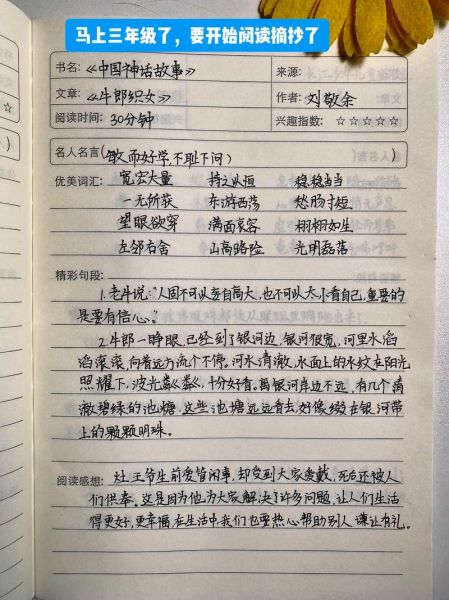 马上三年级了，要开始阅读摘抄了
书名: 《中国神话故事》 来源:
文章: 《牛郎织女》 作者: 刘敬余
阅读时间: 30分钟 兴趣指数: ☆☆☆☆☆
名人名言(敏而好学,不耻下问)
优美词汇: 宽宏大量 持之以恒 稳稳当当
一无所获 东游西荡 愁肠寸短
望眼欲穿 满面哀容 栩栩如生
左邻右舍 山高路险 光明磊落
精彩句段:
1.老牛说:"人固不可以妄自高大,也不可以太小看自己,重要的
是要有信心。"
2.牛郎一睁眼,已经到了银河边,银河很宽,河里水滔
滔滚滚,向着远方流个不停。河水清澈,水面上的水纹在阳光
照耀下,波光粼粼,十分好看。离银河岸边不远,有几个清
澈碧绿的池塘,这些池塘远远看去,好像缀在银河带
上的颗颗明珠。
阅读感想: 灶王爷生前爱管闲事,却受到大家爱戴,死后还被人
们供奉。这是因为他为大家解决了许多问题,让人们生活
得更好,更幸福,在生活中我们也要热心帮助别人,谦让有礼。